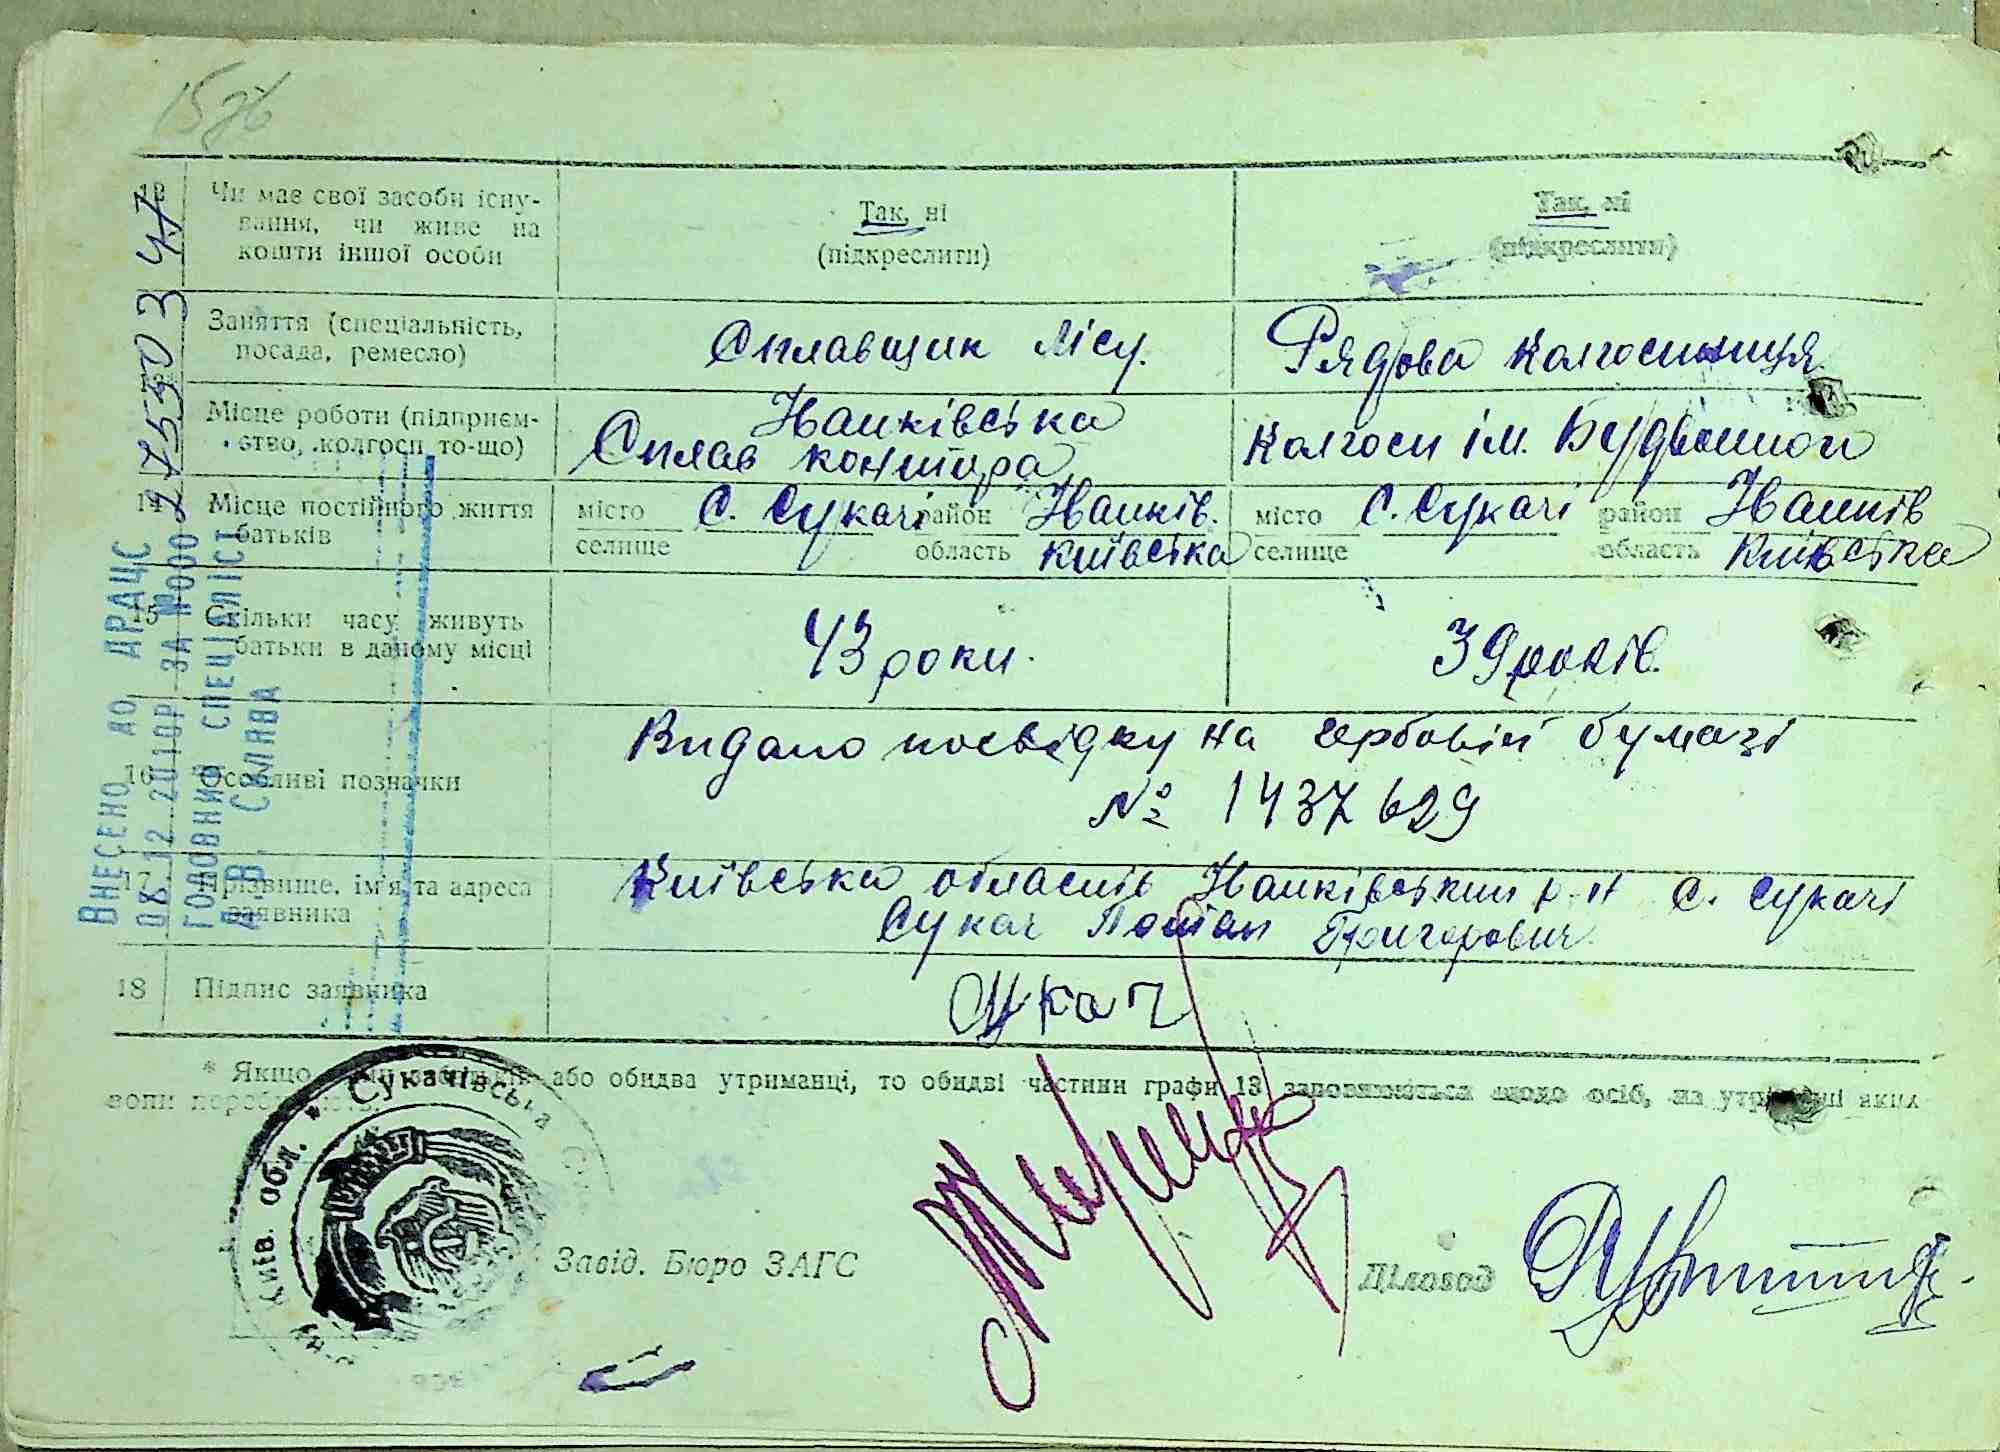 15 зв
12 Чи має свої засоби існу- Так, ні Так, ні
вання, чи живе на (підкреслити) (підкреслити)
кошти іншої особи
Заняття (спеціальність, Сплавщик лісу. Рядова колгоспниця
посада, ремесло)
Місце роботи (підприєм- Іванківська Колгосп ім. Будьонного
ство, колгосп то-що) Сплав контора
14 Місце постійного життя місто С. Сукачі район Іванків. місто С. Сукачі район Іванків
батьків селище область Київська селище область Київська
15 Скільки часу живуть 43 роки. 39 років.
батьки в даному місці
Видано посвідку на гербовій бумазі
16 Особливі позначки № 1437629
17 Прізвище, ім'я та адреса Київська область Іванківський р-н с. Сукачі
заявника Сукач Григорович
18 Підпис заявника Сукач
* Якщо або обидва утриманці, то обидві частини графи 13 заповнюються щодо осіб, на утриманні яких
вони
Завід. Бюро ЗАГС
Діловод
Внесено до ДРАЦС
08.12.2010р за №000 275503 47
головний спеціаліст
Київ. обл. * Сукачівська